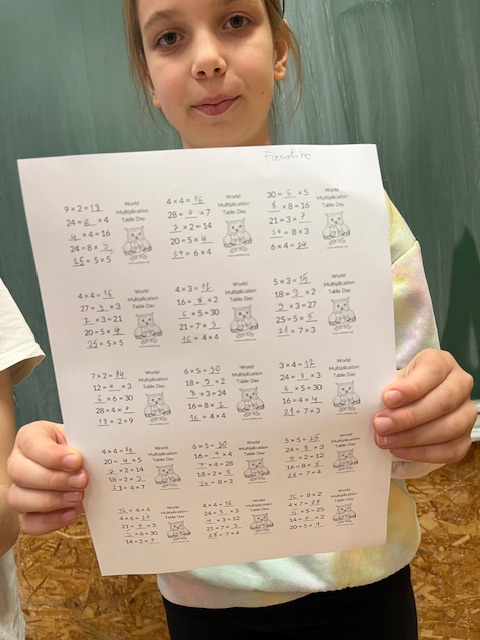 9 × 2 = 18
24 = 6 × 4
4 × 4 = 16
24 = 8 × 3
25 = 5 × 5
World
Multiplication
Table Day
4 × 4 = 16
28 = × 7
7 × 2 = 14
20 = 5 × 4
24 = 6 × 4
World
Multiplication
Table Day
30 = 6 × 5
× 8 = 16
21 = 3 × 7
24 = 8 × 3
6 × 4 = 24
World
Multiplication
Table Day
4 × 4 = 16
27 = × 3
7 × 3 = 21
20 = 5 × 4
25 = 5 × 5
World
Multiplication
Table Day
4 × 3 = 12
16 = 8 × 2
6 × 5 = 30
21 = 7 × 3
16 = 4 × 4
World
Multiplication
Table Day
5 × 3 = 15
18 = 9 × 2
9 × 3 = 27
25 = 5 × 5
21 = 7 × 3
World
Multiplication
Table Day
7 × 2 = 14
12 = × 3
6 × 6 = 30
28 = 4 ×
18 = 2 × 9
World
Multiplication
Table Day
6 × 5 = 30
18 = 9 × 2
8 × 3 = 24
16 = 8 × 2
16 = 4 × 4
World
Multiplication
Table Day
3 × 4 = 12
24 = 8 × 3
6 × 5 = 30
16 = 4 × 4
21 = 7 × 3
World
Multiplication
Table Day
4 × 4 = 16
20 = 4 × 5
7 × 2 = 14
18 = 2 × 9
28 = 4 × 7
World
Multiplication
Table Day
6 × 5 = 30
16 = × 4
7 × 4 = 28
18 = 2 ×
= 8 × 3
World
Multiplication
Table Day
5 × 5 = 25
24 = 8 × 3
× 2 = 12
16 = 8 ×
28 = 7 × 4
World
Multiplication
Table Day
16 = 4 × 4
4 × 6 =
21 = × 3
× 6 = 30
14 = 2 ×
World
Multiplication
Table Day
4 × 4 = 16
24 = 8 × 3
4 × 3 = 12
21 = 7 × 3
28 = 7 × 4
World
Multiplication
Table Day
16 = 8 × 2
4 × 7 = 28
× 5 = 25
14 = × 2
20 = 5 × 4
World
Multiplication
Table Day